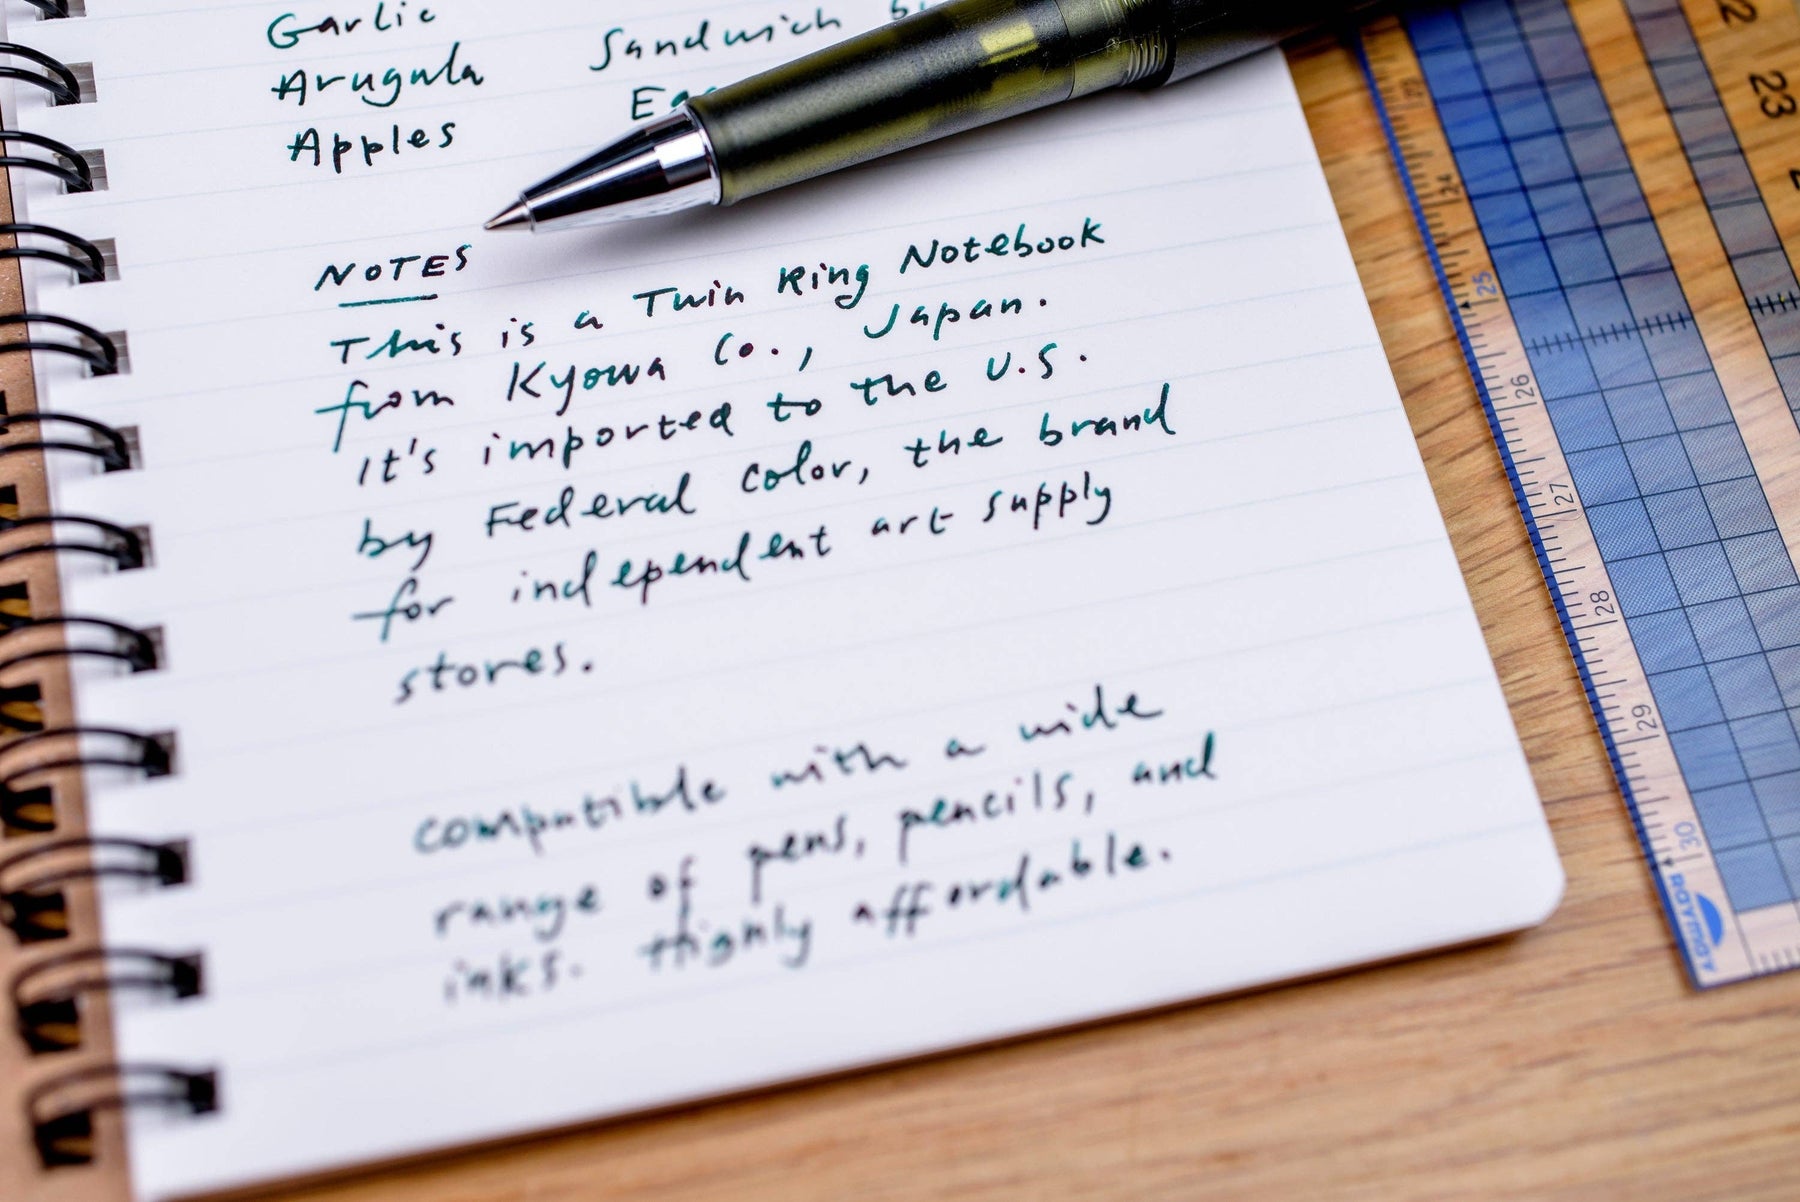 Garlic
Arugula
Apples
Sandwich
NOTES
This is a Twin Ring Notebook
from Kyowa Co., Japan.
It's imported to the U.S.
by Federal Color, the brand
for independent art supply
stores.
compatible with a wide
range of pens, pencils, and
inks. Highly affordable.
23
24
25
26
27
28
29
30